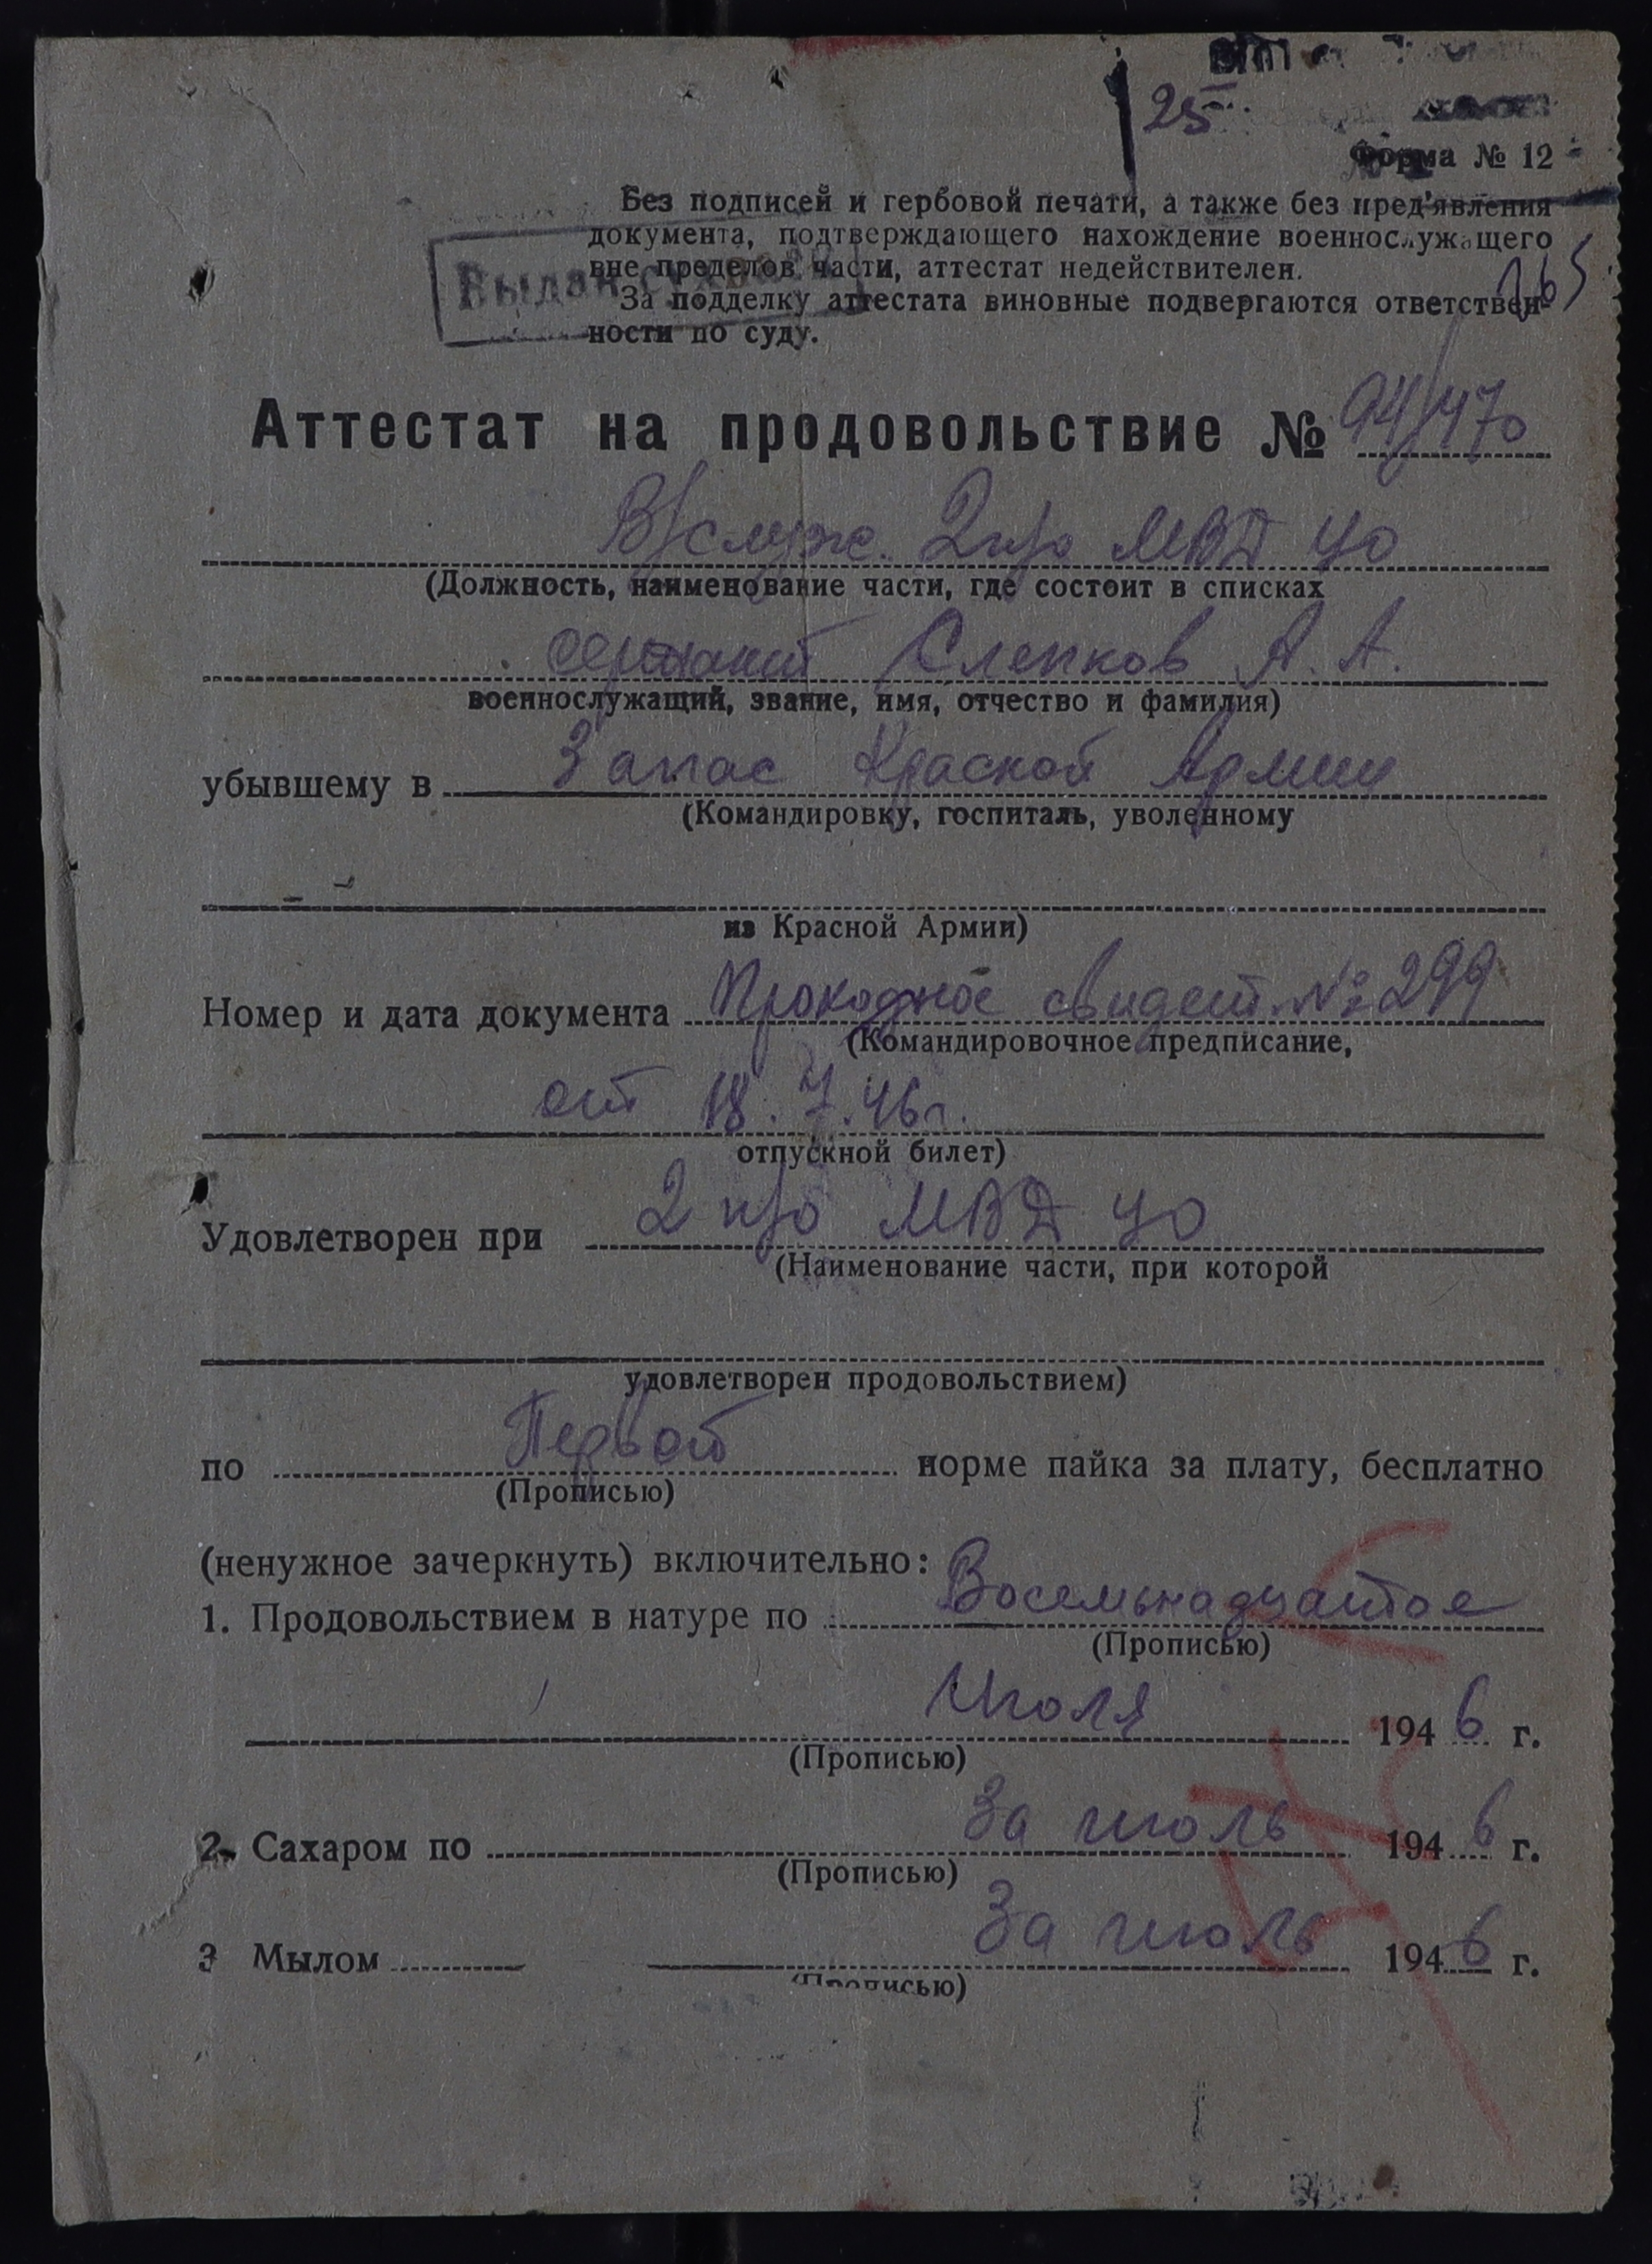 25
Форма № 12
Без подписей и гербовой печати, а также без пред'явления
документа, подтверждающего нахождение военнослужащего
вне пределов части, аттестат недействителен.
За подделку аттестата виновные подвергаются ответствен-
ности по суду.
Аттестат на продовольствие № 94/470
В/служ. 2 п/о МВД ЦО
(Должность, наименование части, где состоит в списках
сержант Слепков А. А.
военнослужащий, звание, имя, отчество и фамилия)
убывшему в Запас Краской Армии
(Командировку, госпиталь, уволенному
из Красной Армии)
Номер и дата документа Проходное свидет. № 299
(Командировочное предписание,
от 18.7.46 г.
отпускной билет)
Удовлетворен при 2 п/о МВД ЦО
(Наименование части, при которой
удовлетворен продовольствием)
по Первой норме пайка за плату, бесплатно
(Прописью)
(ненужное зачеркнуть) включительно:
1. Продовольствием в натуре по Восемьнадцатое
(Прописью)
Июля 1946 г.
(Прописью)
2. Сахаром по За июль 1946 г.
(Прописью)
3 Мылом За июль 1946 г.
(Прописью)